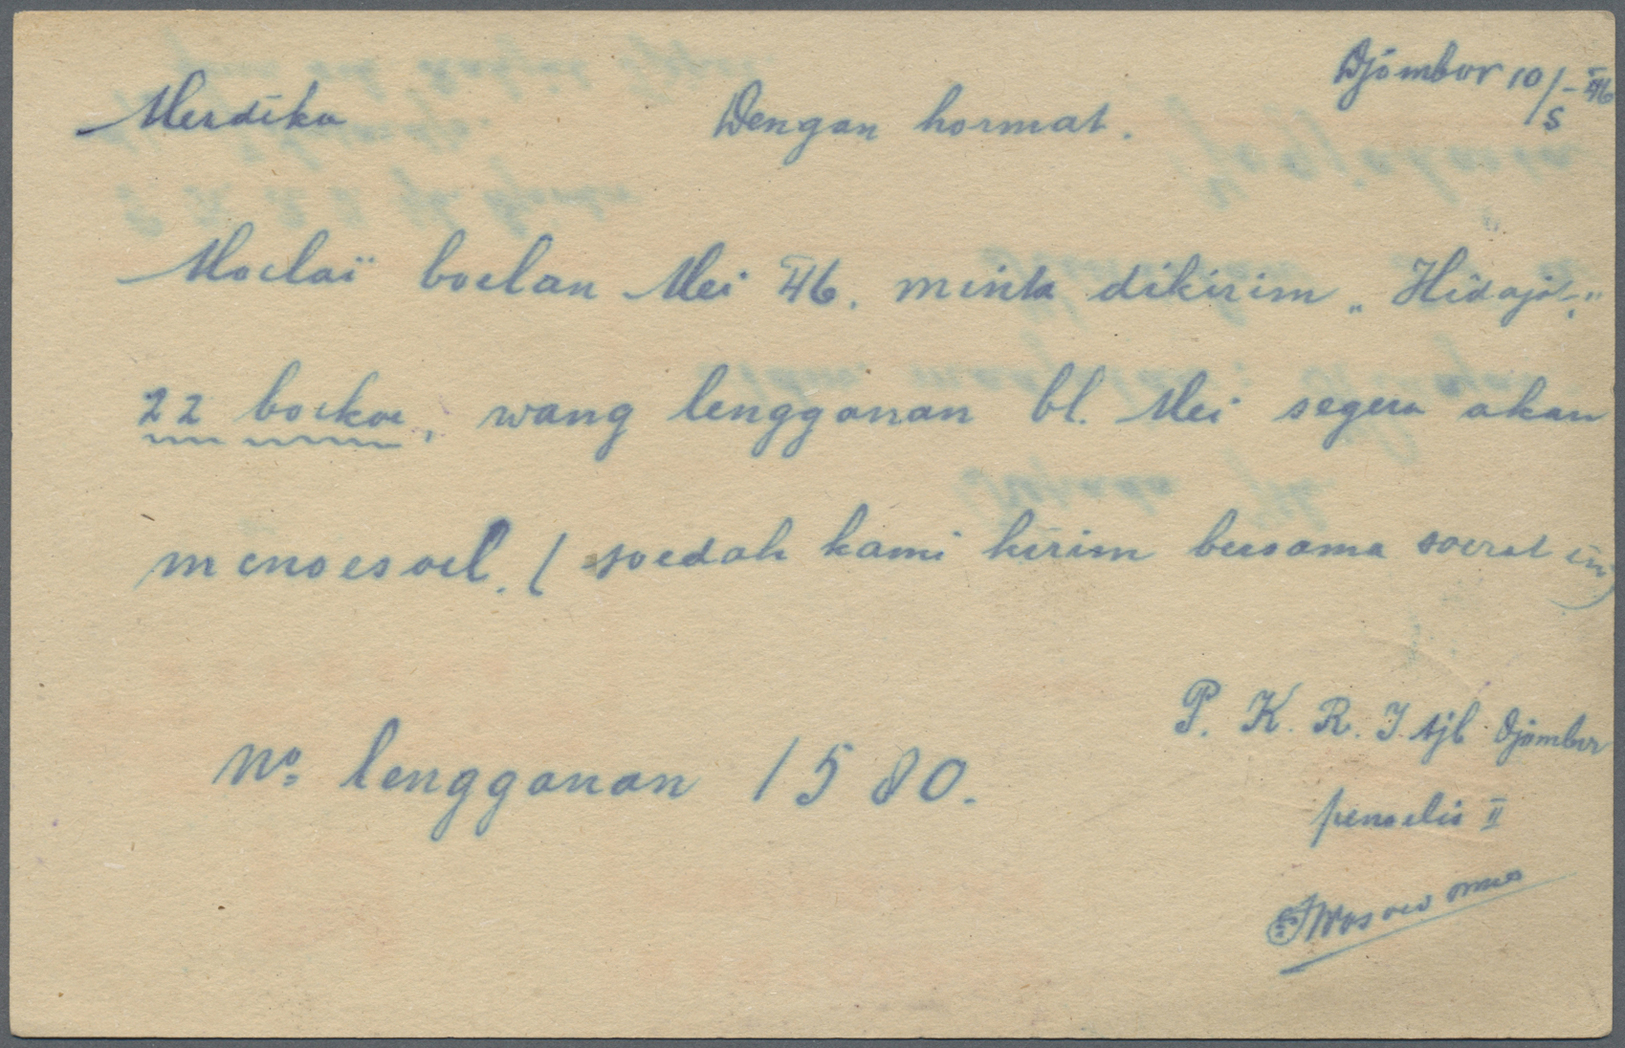 Djömbor 10/5-'46
Merdika Dengan hormat.
Moelaï boelan Mei '46. minta dikirim „Hidajö-"
22 boekoe, wang lengganan bl. Mei segera akan
menoesoel. (soedah kami kirim bersama soerat ini)
P. K. R. I tjb Djömbor
No lengganan 1580.
penoelis II